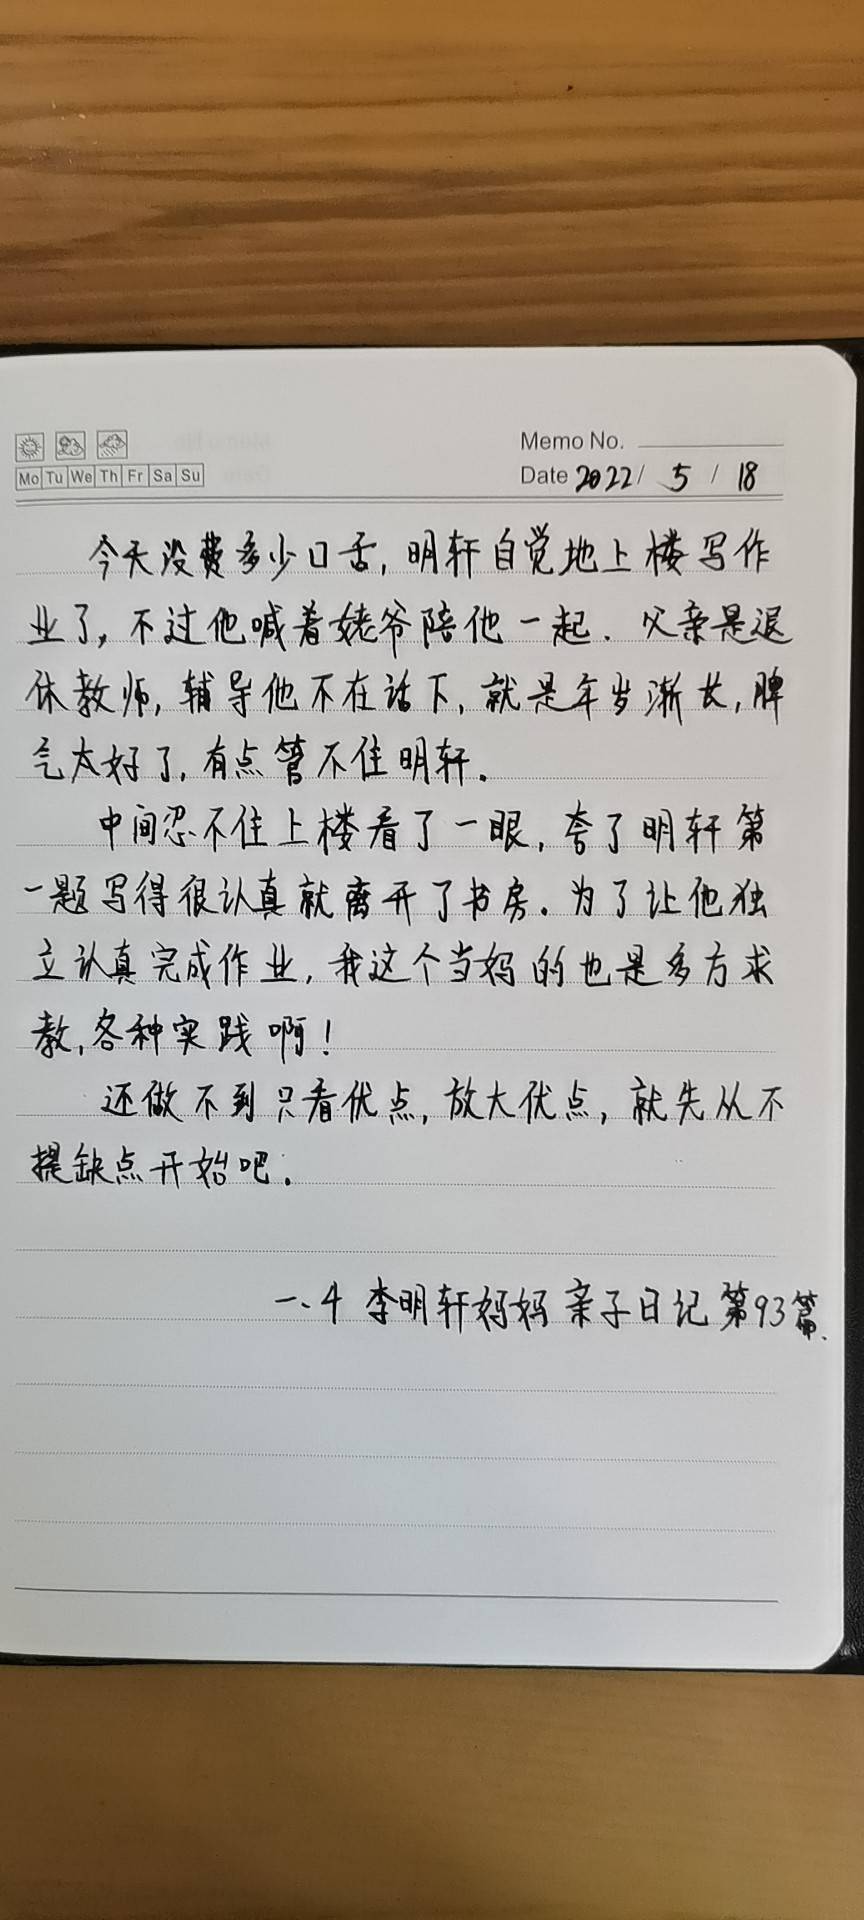 Memo No.
Mo Tu We Th Fr Sa Su
Date 2022/ 5 / 18
今天没费多少口舌，明轩自觉地上楼写作
业了，不过他喊着姥爷陪他一起．父亲是退
休教师，辅导他不在话下，就是年岁渐长，脾
气太好了，有点管不住明轩。
中间忍不住上楼看了一眼，夸了明轩第
一题写得很认真就离开了书房。为了让他独
立认真完成作业，我这个当妈的也是多方求
教，各种实践啊！
还做不到只看优点，放大优点，就先从不
提缺点开始吧．
一、4 李明轩妈妈 亲子日记 第93篇．